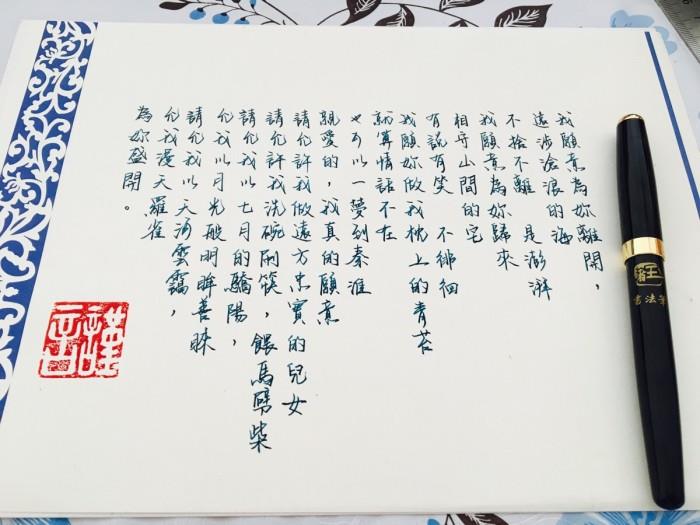 我願意為妳離開，
遠涉滄浪的海
不捨不離 是澎湃
我願意為妳歸來
相守山間的宅
有說有笑 不徘徊
我願妳做我枕上的青苔
就算情話不在
也可以一夢到秦淮
親愛的，我真的願意
請允許我做遠方忠實的兒女
請允許我洗碗刷筷，餵馬劈柴
請允我以七月的驕陽，
允我以月光般明眸善睞
請允我以天河雲靄，
允我漫天羅雀
為妳盛開。
謹言
書法筆